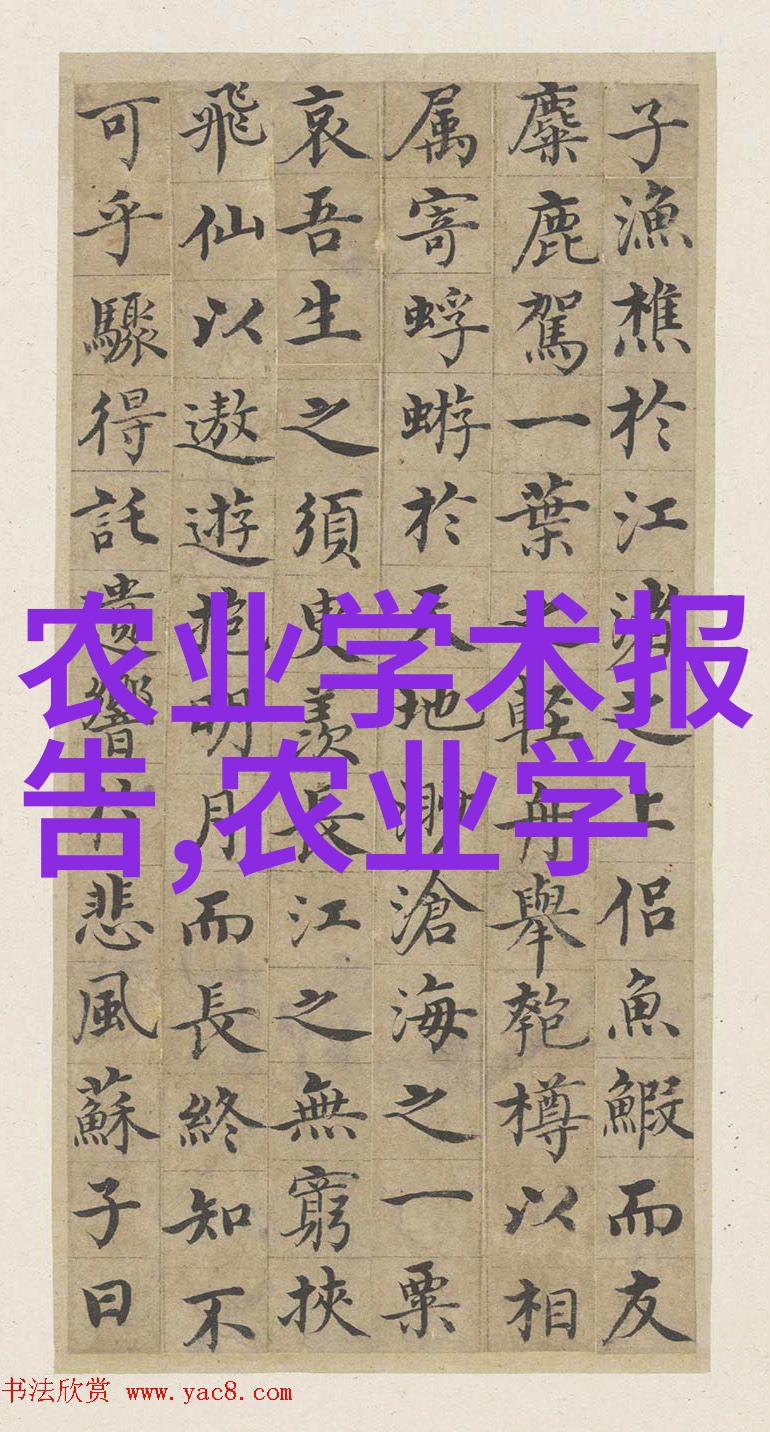 子漁樵於江渚之上侶魚鰕而友
麋鹿駕一葉之輕舟舉匏樽以相
属寄蜉蝣於天地渺滄海之一粟
哀吾生之須臾羨長江之無窮挾
飛仙以遨遊抱明月而長終知不
可乎驟得託遺響於悲風蘇子曰
农业学术报
告,农业学
书法欣赏 www.yac8.com